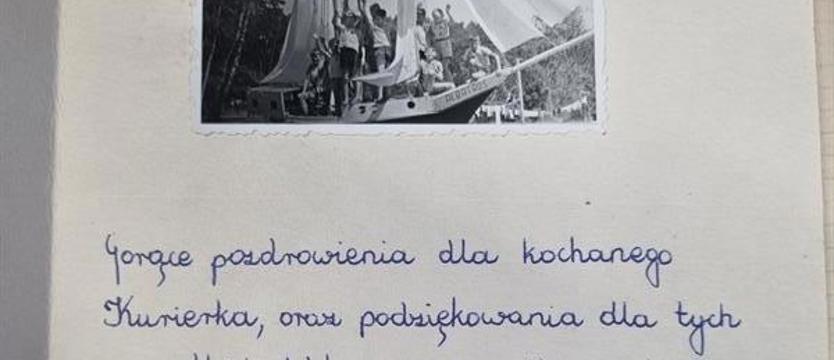 ALBATROS
Gorące pozdrowienia dla kochanego
Kurierka, oraz podziękowania dla tych